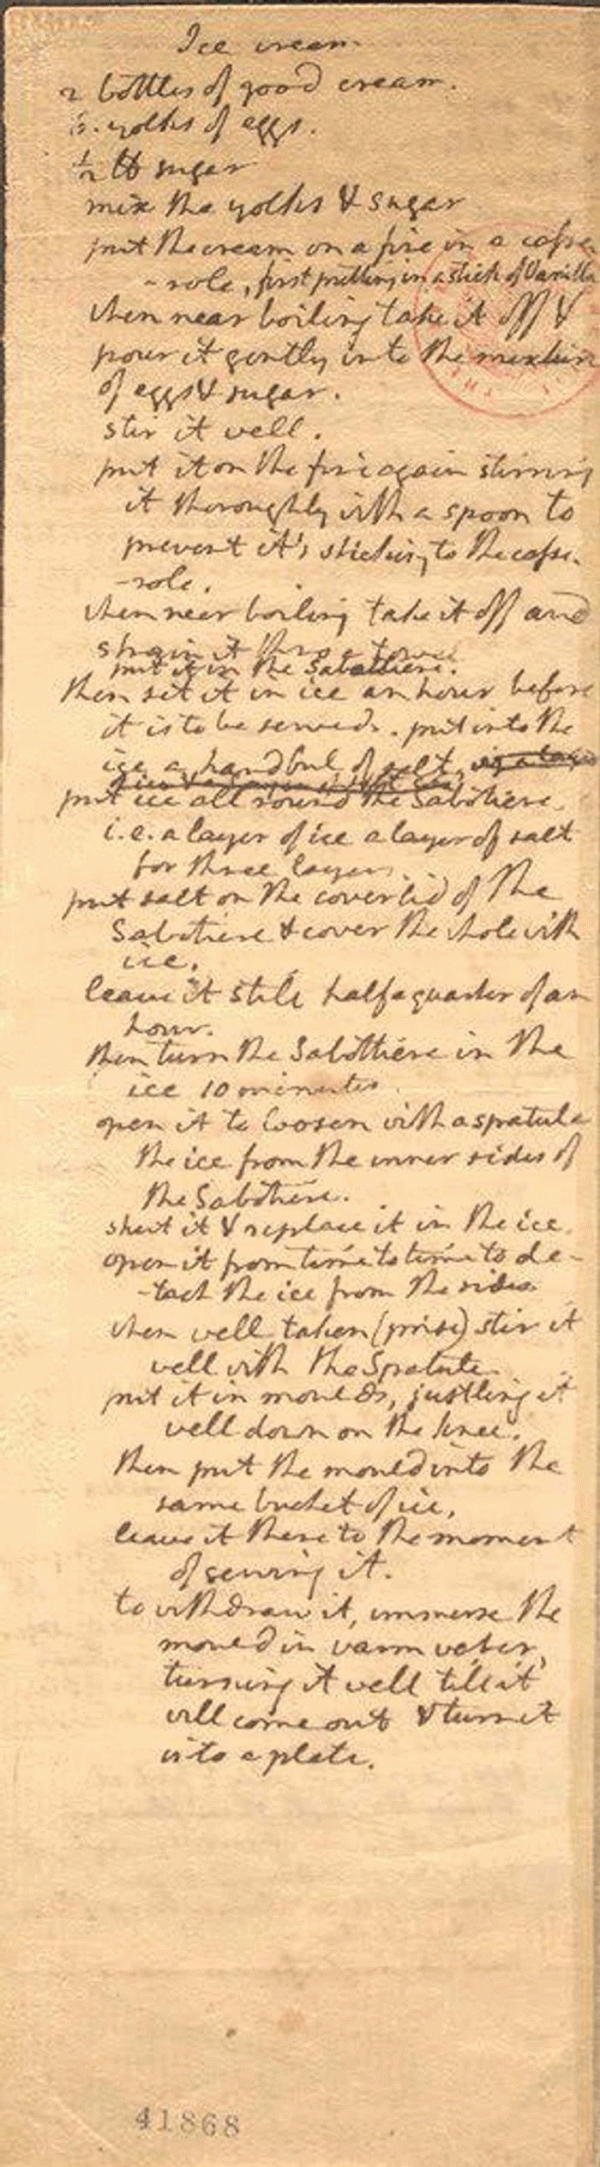 Ice cream.
2 bottles of good cream.
6. yolks of eggs.
1/2 lb sugar
mix the yolks & sugar
put the cream on a fire in a casse-
-role, first putting in a stick of Vanilla.
when near boiling take it off &
pour it gently into the mixture
of eggs & sugar.
stir it well.
put it on the fire again stirring
it thoroughly with a spoon to
prevent it's sticking to the casse-
-role.
when near boiling take it off and
strain it thro' a towel.
put it in the Sabottiere.
then set it in ice an hour before
it is to be served. put into the
ice a handful of salt.
put ice all round the Sabotiere
i.e. a layer of ice a layer of salt
for three layers.
put salt on the coverlid of the
Sabotiere & cover the whole with
ice.
leave it still half a quarter of an
hour.
then turn the Sabottiere in the
ice 10 minutes
open it to loosen with a spatula
the ice from the inner sides of
the Sabotiere.
shut it & replace it in the ice.
open it from time to time to de-
-tach the ice from the sides
when well taken (prise) stir it
well with the Spatula.
put it in moulds, justling it
well down on the knee.
then put the mould into the
same bucket of ice.
leave it there to the moment
of serving it.
to withdraw it, immerse the
mould in warm water,
turning it well till it
will come out & turn it
into a plate.
41868